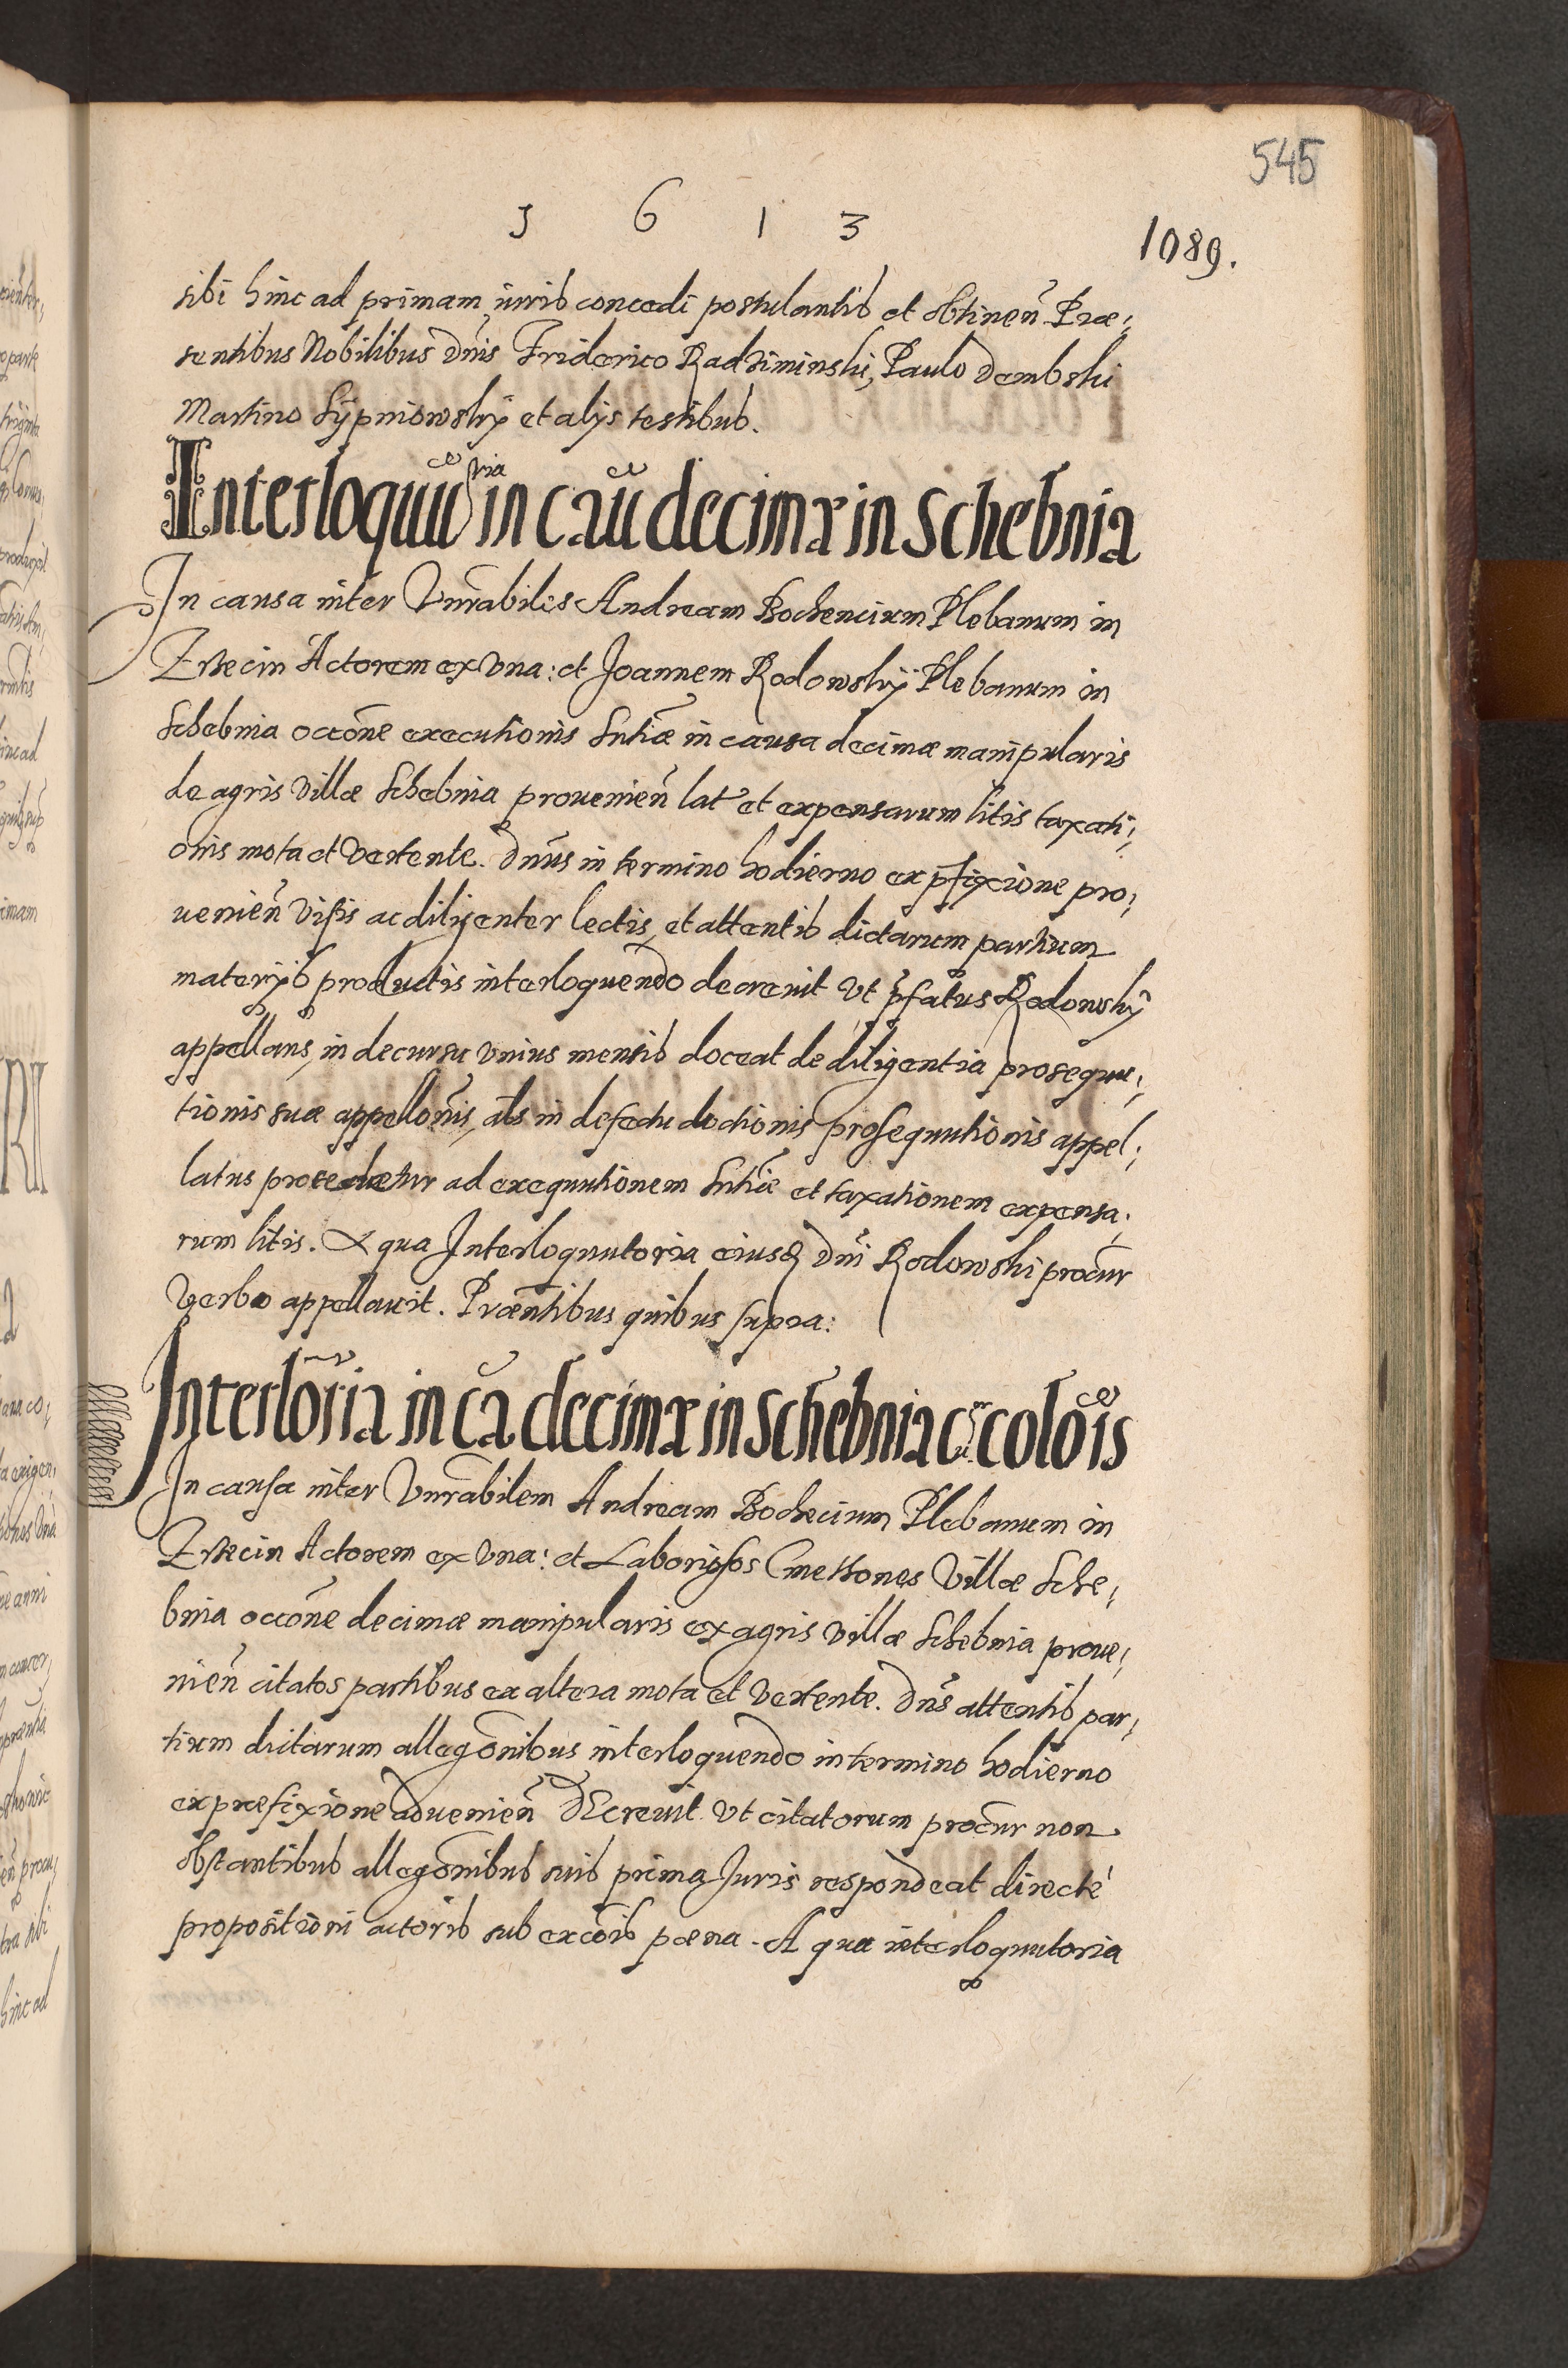 545
1 6 1 3
1089.
sibi hinc ad primam iuris concedi postulantis et obtinen̄ Præ;
sentibus Nobilibus Dnis Friderico Radziminski, Paulo Dembski
Martino Sÿpniowskÿ et alÿs testibus.
Interloquū ria in cau decimæ in Schebnia
In causa inter Vnrabiles Andream Bochencium Plebanum in
Zrzecin Actorem ex Vna: et Joannem Rodowskÿ Plebanum in
Schebnia occōne executionis Sntiæ in causa decimæ manipularis
de agris Villæ Schebnia prouenien̄ lat et expensarum litis taxati;
onis mota et Vertente. Dnus in termino hodierno ex pfixione pro;
uenien̄ Visis ac diligenter lectis, et attentis dictarum partium
materÿs productis interloquendo decreuit Vt pfatus Rodowskÿ
appellans, in decursu Vnius mensis doceat de diligentia prosequu;
tionis suæ appellonis, als in defectu doctionis prosequutionis appel;
latus procedetur ad exequutionem Sntiæ et taxationem expensa;
rum litis. A qua Interloquutoria eiusd Dni Rodowski procur
Verbo appellauit. Præntibus quibus supra:
Interloria in ca decimæ in Schebnia colois
In causa inter Vnrabilem Andream Bochecium Plebanum in
Zrzecin Actorem ex Vna: et Laboriosos Cmethones Villæ Sche;
bnia occōne decimæ manipularis ex agris Villæ Schebnia proue;
nien̄ citatos partibus ex altera mota et Vertente. Dns attentis par;
tium dictarum allegōnibus interloquendo in termino hodierno
ex præfixione aduenien̄ DEcreuit Vt citatorum procur non
obstantibus allegōnibus suis prima Juris respondeat directè
propositioni actoris sub excōis pœna. A qua interloquutoria